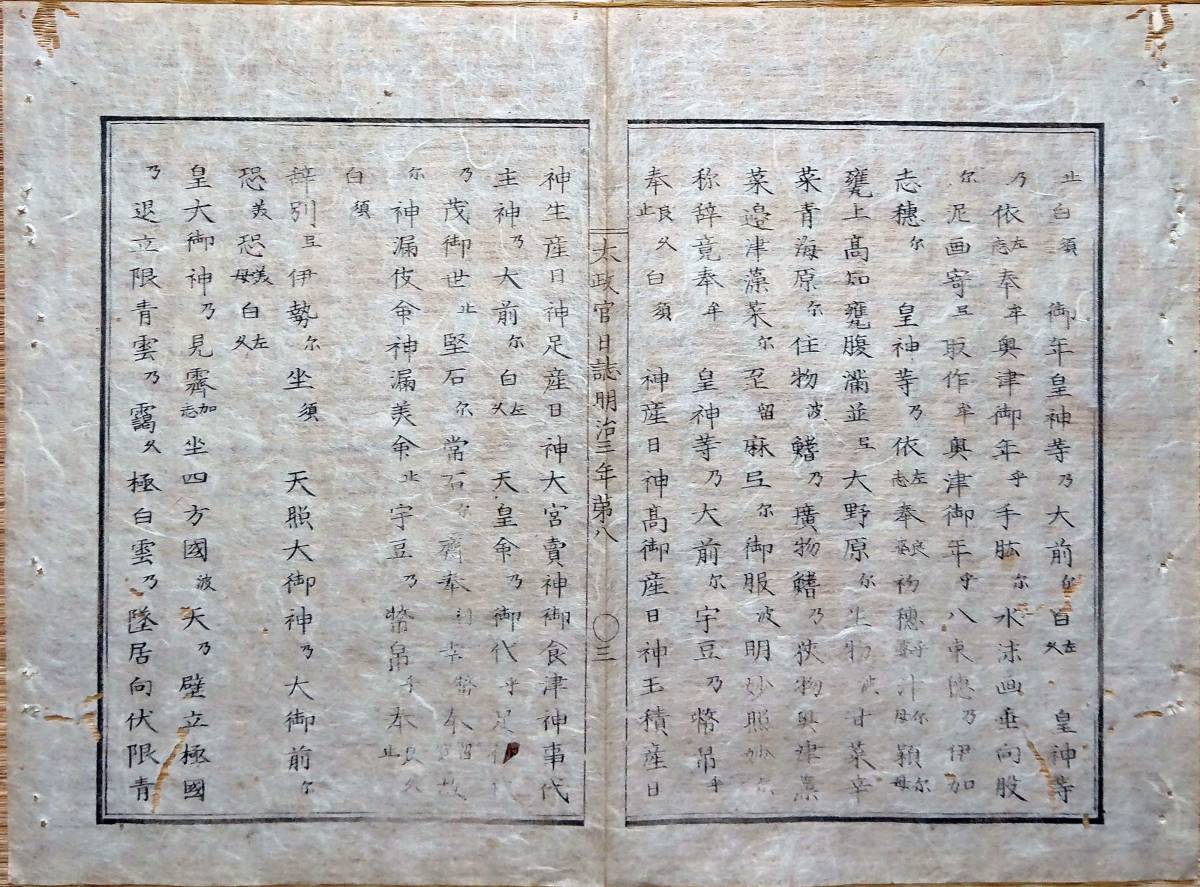 止白須　御年皇神等乃大前尓白左久　皇神等
乃依左志奉牟奥津御年乎手肱尓水沫画垂向股
尓泥画寄弖取作牟奥津御年乎八束穂乃伊加
志穂尓　皇神等乃依左志奉良波初穂乎汁尓母穎尓母
甕上高知甕腹満並弖大野原尓生物波甘菜辛
菜青海原尓住物波鰭乃広物鰭乃狭物奥津藻
菜邊津藻菜尓至留麻弖尓御服波明妙照妙
称辞竟奉牟　皇神等乃大前尓宇豆乃幣帛乎
奉良久止白須　神産日神高御産日神玉積産日
太政官日誌明治三年第八　〇三
神生産日神足産日神大宮賣神御食津神事代
主神乃大前尓白左久　天皇命乃御代乎足御代
乃茂御世止堅石尓常石尓齋奉
尓神漏伎命神漏美命止宇豆乃幣帛乎奉良久止
白須
辞別弖伊勢尓坐須　天照大御神乃大御前尓
恐美恐美母白左久
皇大御神乃見霽加志坐四方國波天乃壁立極國
乃退立限青雲乃靄久極白雲乃墜居向伏限青